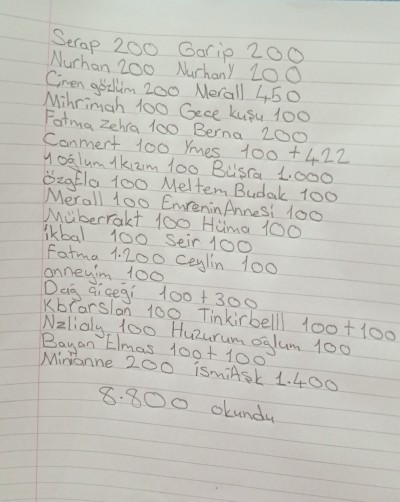 Serap 200 Garip 200
Nurhan 200 NurhanY 200
Ciren gözlüm 200 Merall 450
Mihrimah 100 Gece kuşu 100
Fatma Zehra 100 Berna 200
Canmert 100 Ymes 100 + 422
1 oğlum 1 kızım 100 Büşra 1.000
özgEla 100 Meltem Budak 100
Merall 100 EmreninAnnesi 100
Müberrakt 100 Hüma 100
ikbal 100 Seir 100
Fatma 1.200 Ceylin 100
anneyim 100
Dağ Çiçeği 100 + 300
Kbrarslan 100 Tinkirbelll 100 + 100
Nzlialy 100 Huzurum oğlum 100
Bayan Elmas 100 + 100
Minianne 200 ismiAşk 1.400
8.800 okundu